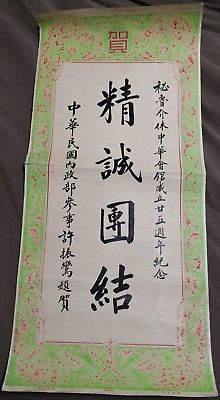 賀
秘魯介休中華會館成立廿五週年紀念
精誠團結
中華民國內政部參事許振鶯題賀